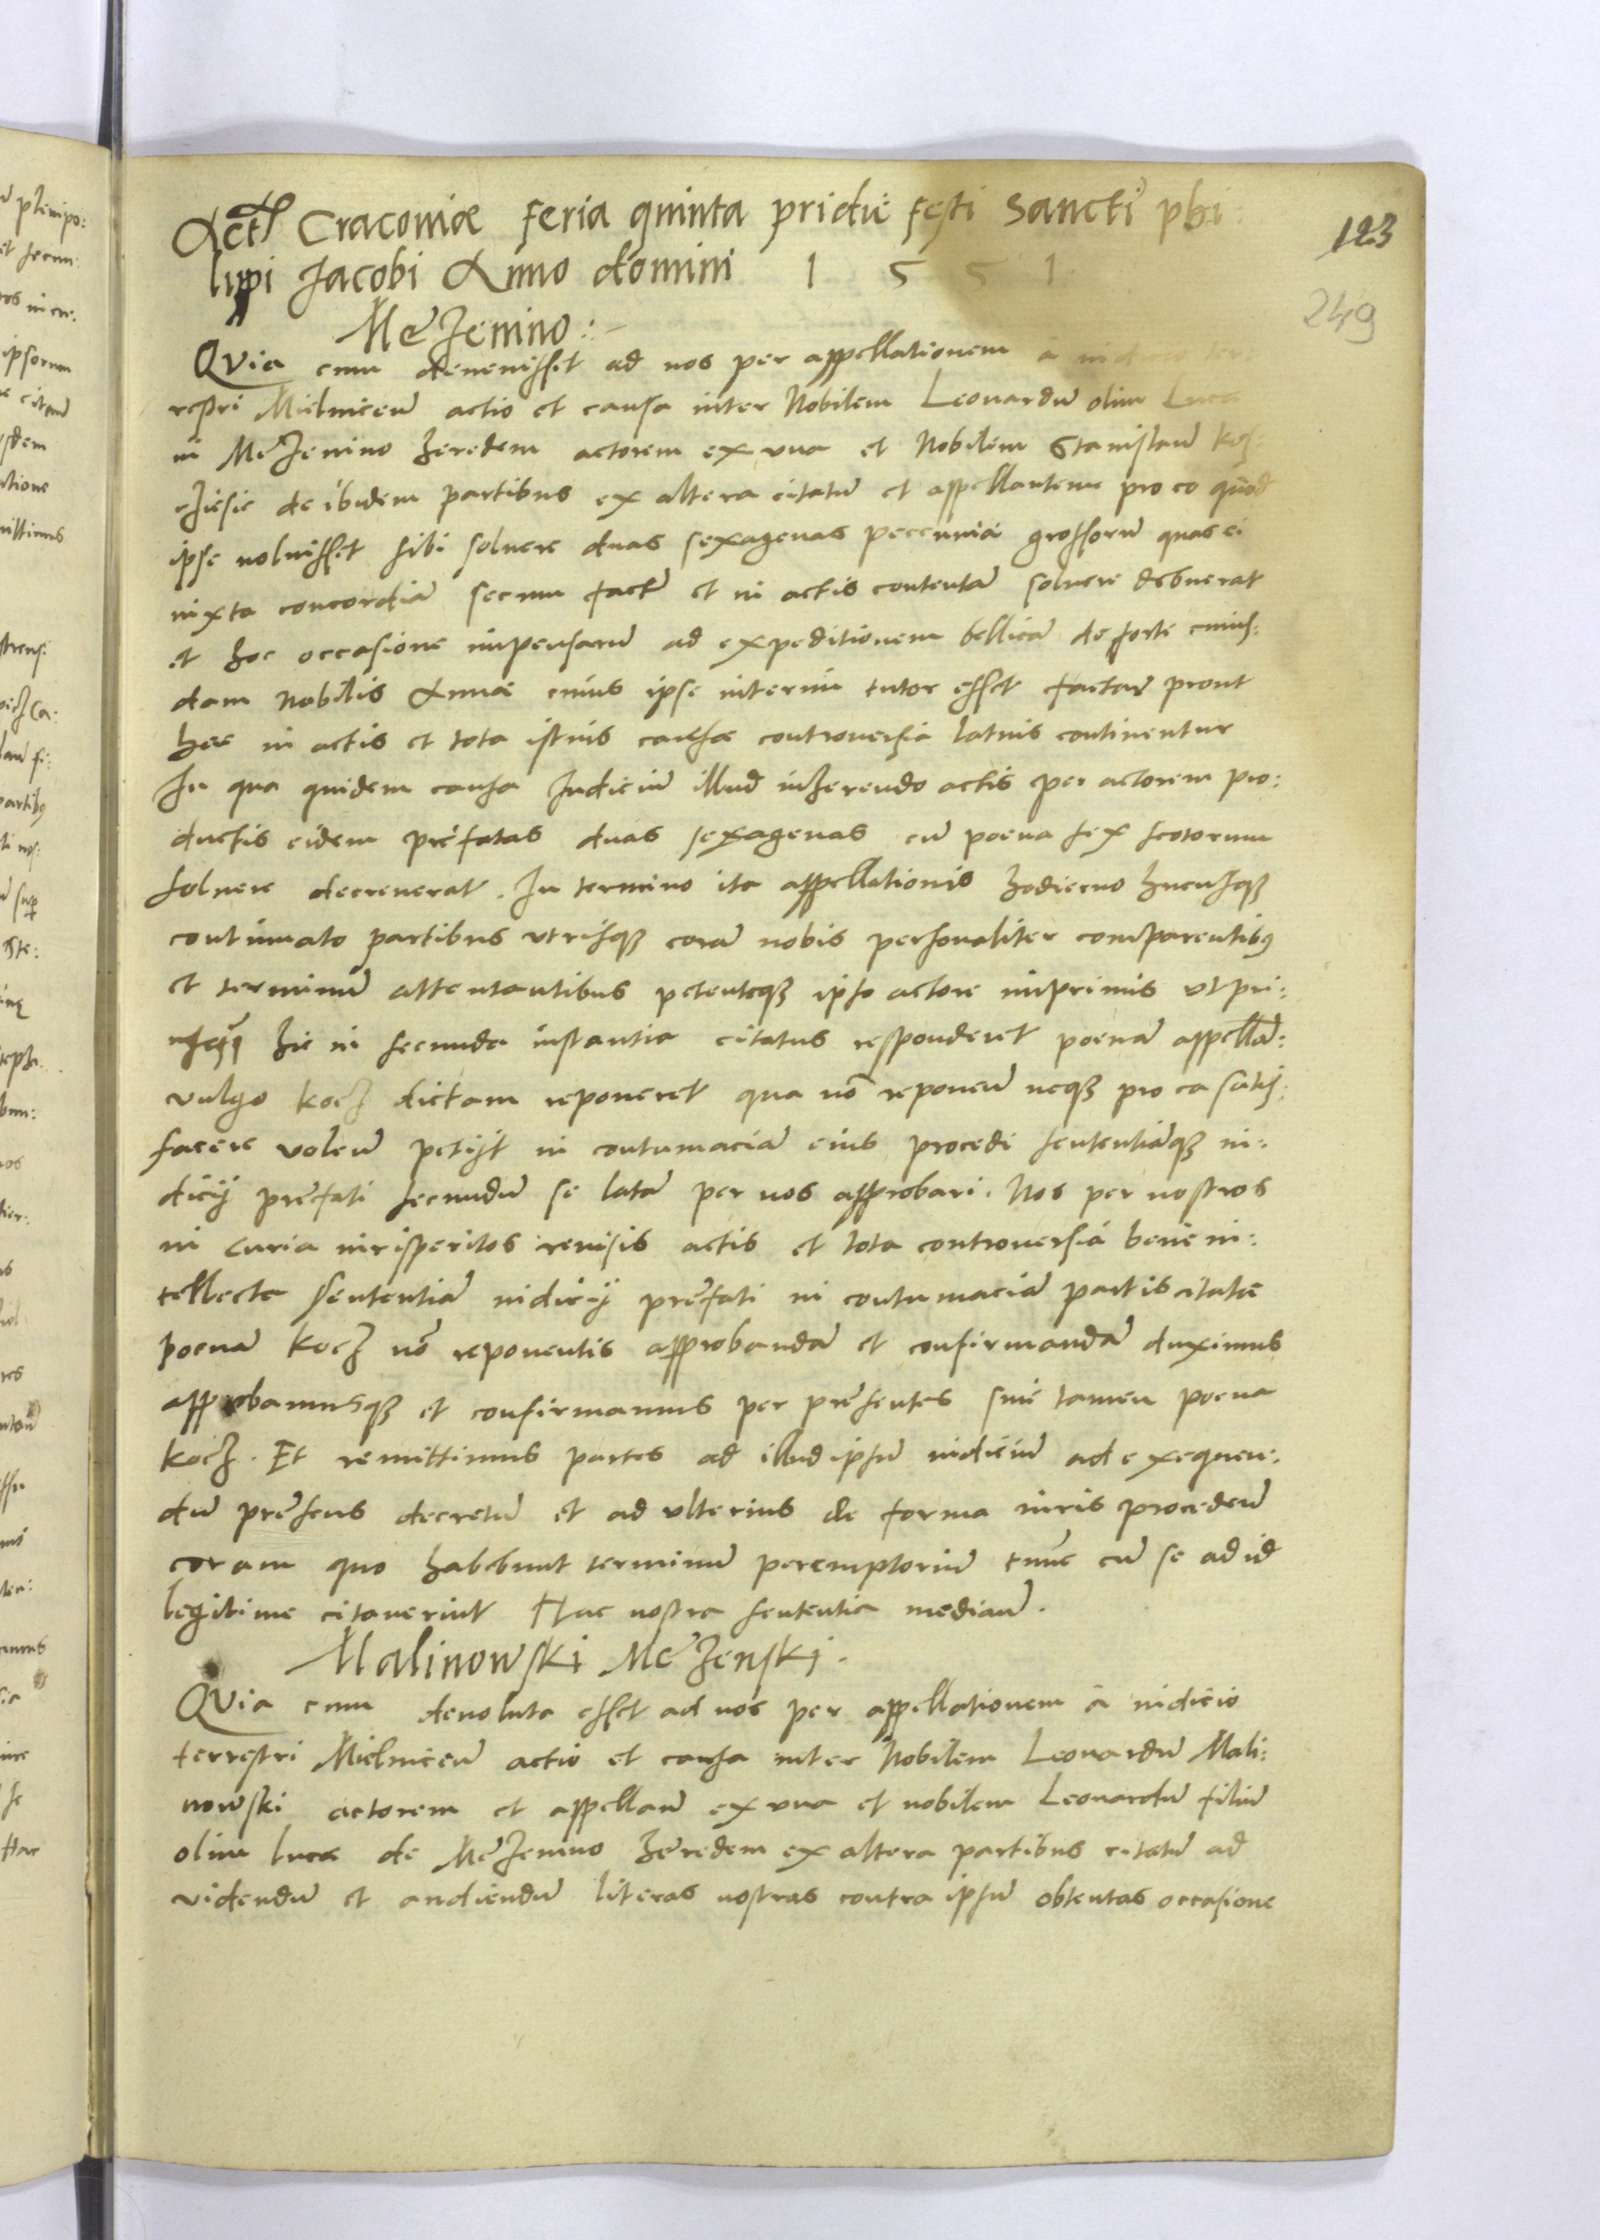 Act Cracoviæ feria quinta pridie festi Sancti phi
lippi Jacobi Anno domini 1 5 5 1
123
249
Merzenino:
QVia cum devenisset ad nos per appellationem a
restri Mielnicen̄ actio et causa inter Nobilem Leonardū olim Luca
in Merzenino heredem actorem ex una et Nobilem Stanislaū
de ibidem partibus ex altera citatū et appellantem pro eo quod
ipse voluisset sibi solvere duas sexagenas peccuniæ grossorū quas ei
iuxta concordiā secum factā et in actis contentā solvere debuerat
et hoc occasione impensarū ad expeditionem bellicā de sorte cuius:
dam Nobilis Annæ cuius ipse interim tutor esset factarū prout
hec in actis et tota istius causæ controversia latius continentur
In qua quidem causa Iudiciū illud inherendo actis per actorem pro:
ductis eidem prefatas duas sexagenas cū poena sex scotorum
solvere decreverat. In termino ita appellationis hodierno hucusq;
continuato partibus utrisq; corā nobis personaliter comparentib9
et terminū attentantibus petenteq; ipso actore imprimis ut pri:
hic in secunda instantia citatus responderet poenā appellā:
vulgo kocz dictam reponeret qua nō reponen̄ neq; pro ea satis:
facere volen̄ petijt in contumaciā eius procedi sententiāq; iu:
dicij prefati secundū se latā per nos approbari. Nos per nostros
in curia iurisperitos revisis actis et tota controversia bene in:
tellecta Sententiā iudicij prefati in contumaciā partis citatæ
poenā kocz nō reponentis approbandā et confirmandā duximus
approbamusq; et confirmamus per presentes sine tamen poena
kocz. Et remittimus partes ad illud ipsū iudiciū ad exequen:
dū presens decretū et ad ulterius de forma iuris proceden̄
coram quo habebunt terminū peremptoriū tunc cū se ad id
legitime citaverint Hac nostra sententia median̄.
Malinowski Merzenski.
QVia cum devoluta esset ad nos per appellationem a iudicio
terrestri Mielnicen̄ actio et causa inter Nobilem Leonardū Mali:
nowski actorem et appellan̄ ex una et nobilem Leonardū filiū
olim Lucæ de Merzenino heredem ex altera partibus citatū ad
videndū et audiendū literas nostras contra ipsū obtentas occasione